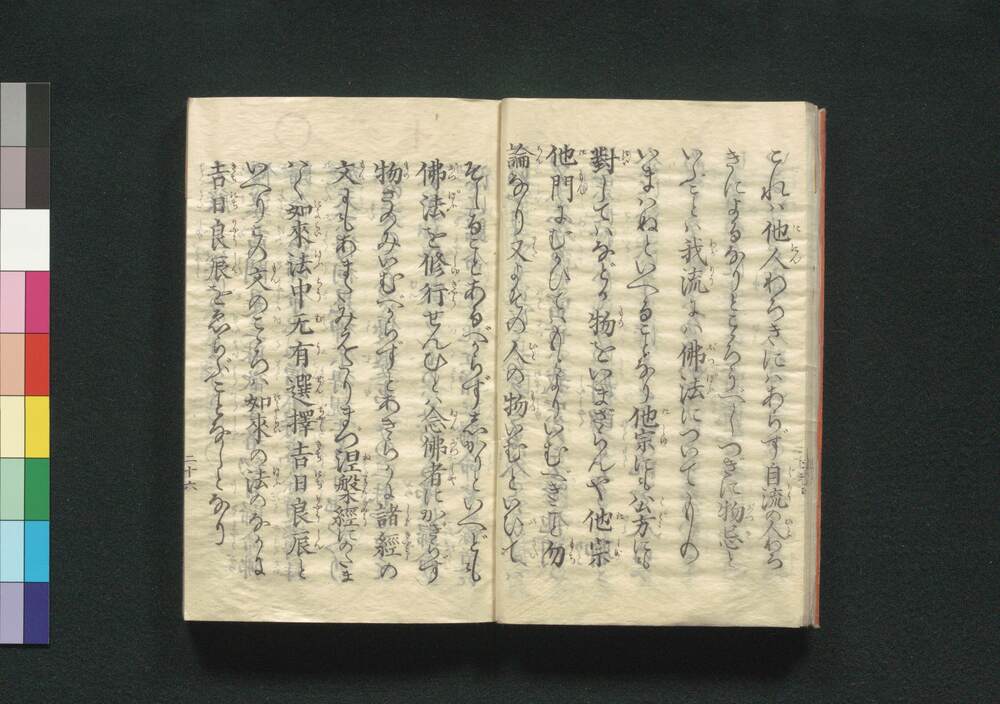 これハ他人わろきにハあらず自流の人わろ
きによるなりとこゝろうべしつぎに物忌と
いふことハ我流にハ佛法についてもの
いまハぬといへることなり他宗にも公方にも
對してハなどか物をいまざらんや他宗
他門にむかひてハもとよりいむべき事勿
論なり又よその人の物いむといひて
そしることあるべからずしかりといへども
佛法を修行せんひとハ念佛者にかぎらず
物さのみいむべからずとあきらかに諸經の
文にもあまたみえたりまづ涅槃經にのたま
ハく如來法中无有選擇吉日良辰と
いへりこの文のこゝろハ如來の法のなかに
吉日良辰をえらぶことなしとなり
二十六